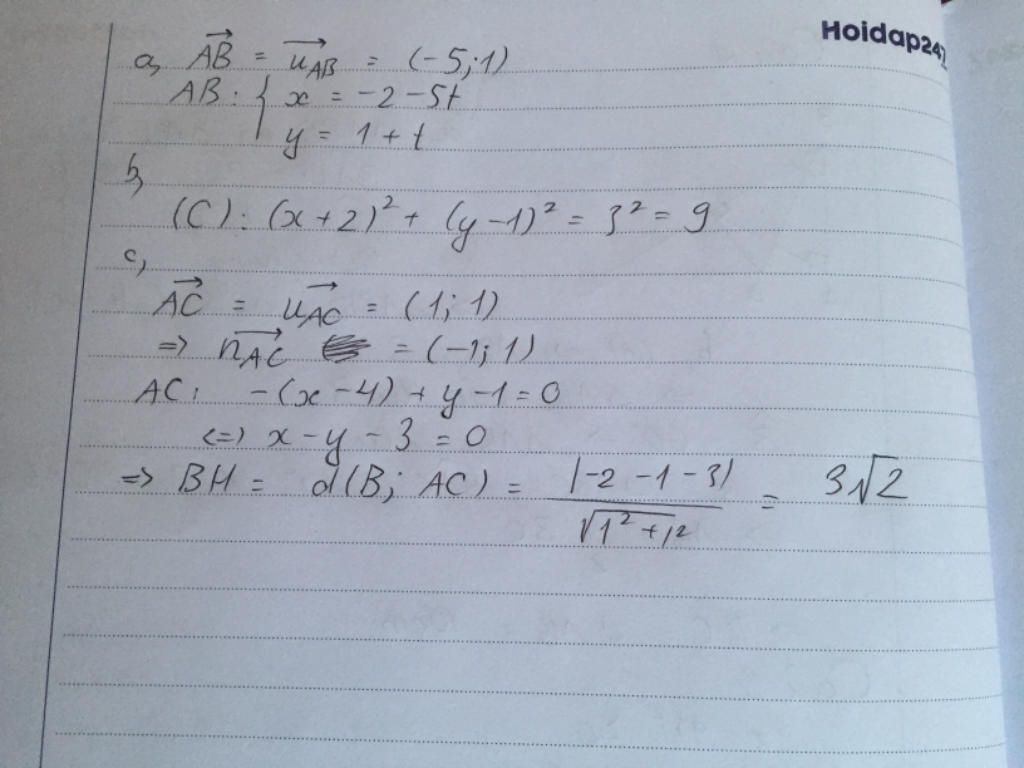 Hoidap247
a, \overrightarrow{AB} = \overrightarrow{u_{AB}} = (-5; 1)
AB: { x = -2 - 5t
y = 1 + t
b,
(C): (x + 2)² + (y - 1)² = 3² = 9
c,
\overrightarrow{AC} = \overrightarrow{u_{AC}} = (1; 1)
=> \overrightarrow{n_{AC}} = (-1; 1)
AC: -(x - 4) + y - 1 = 0
<=> x - y - 3 = 0
=> BH = d(B; AC) = |-2 - 1 - 3| / √(1² + 1²) = 3√2